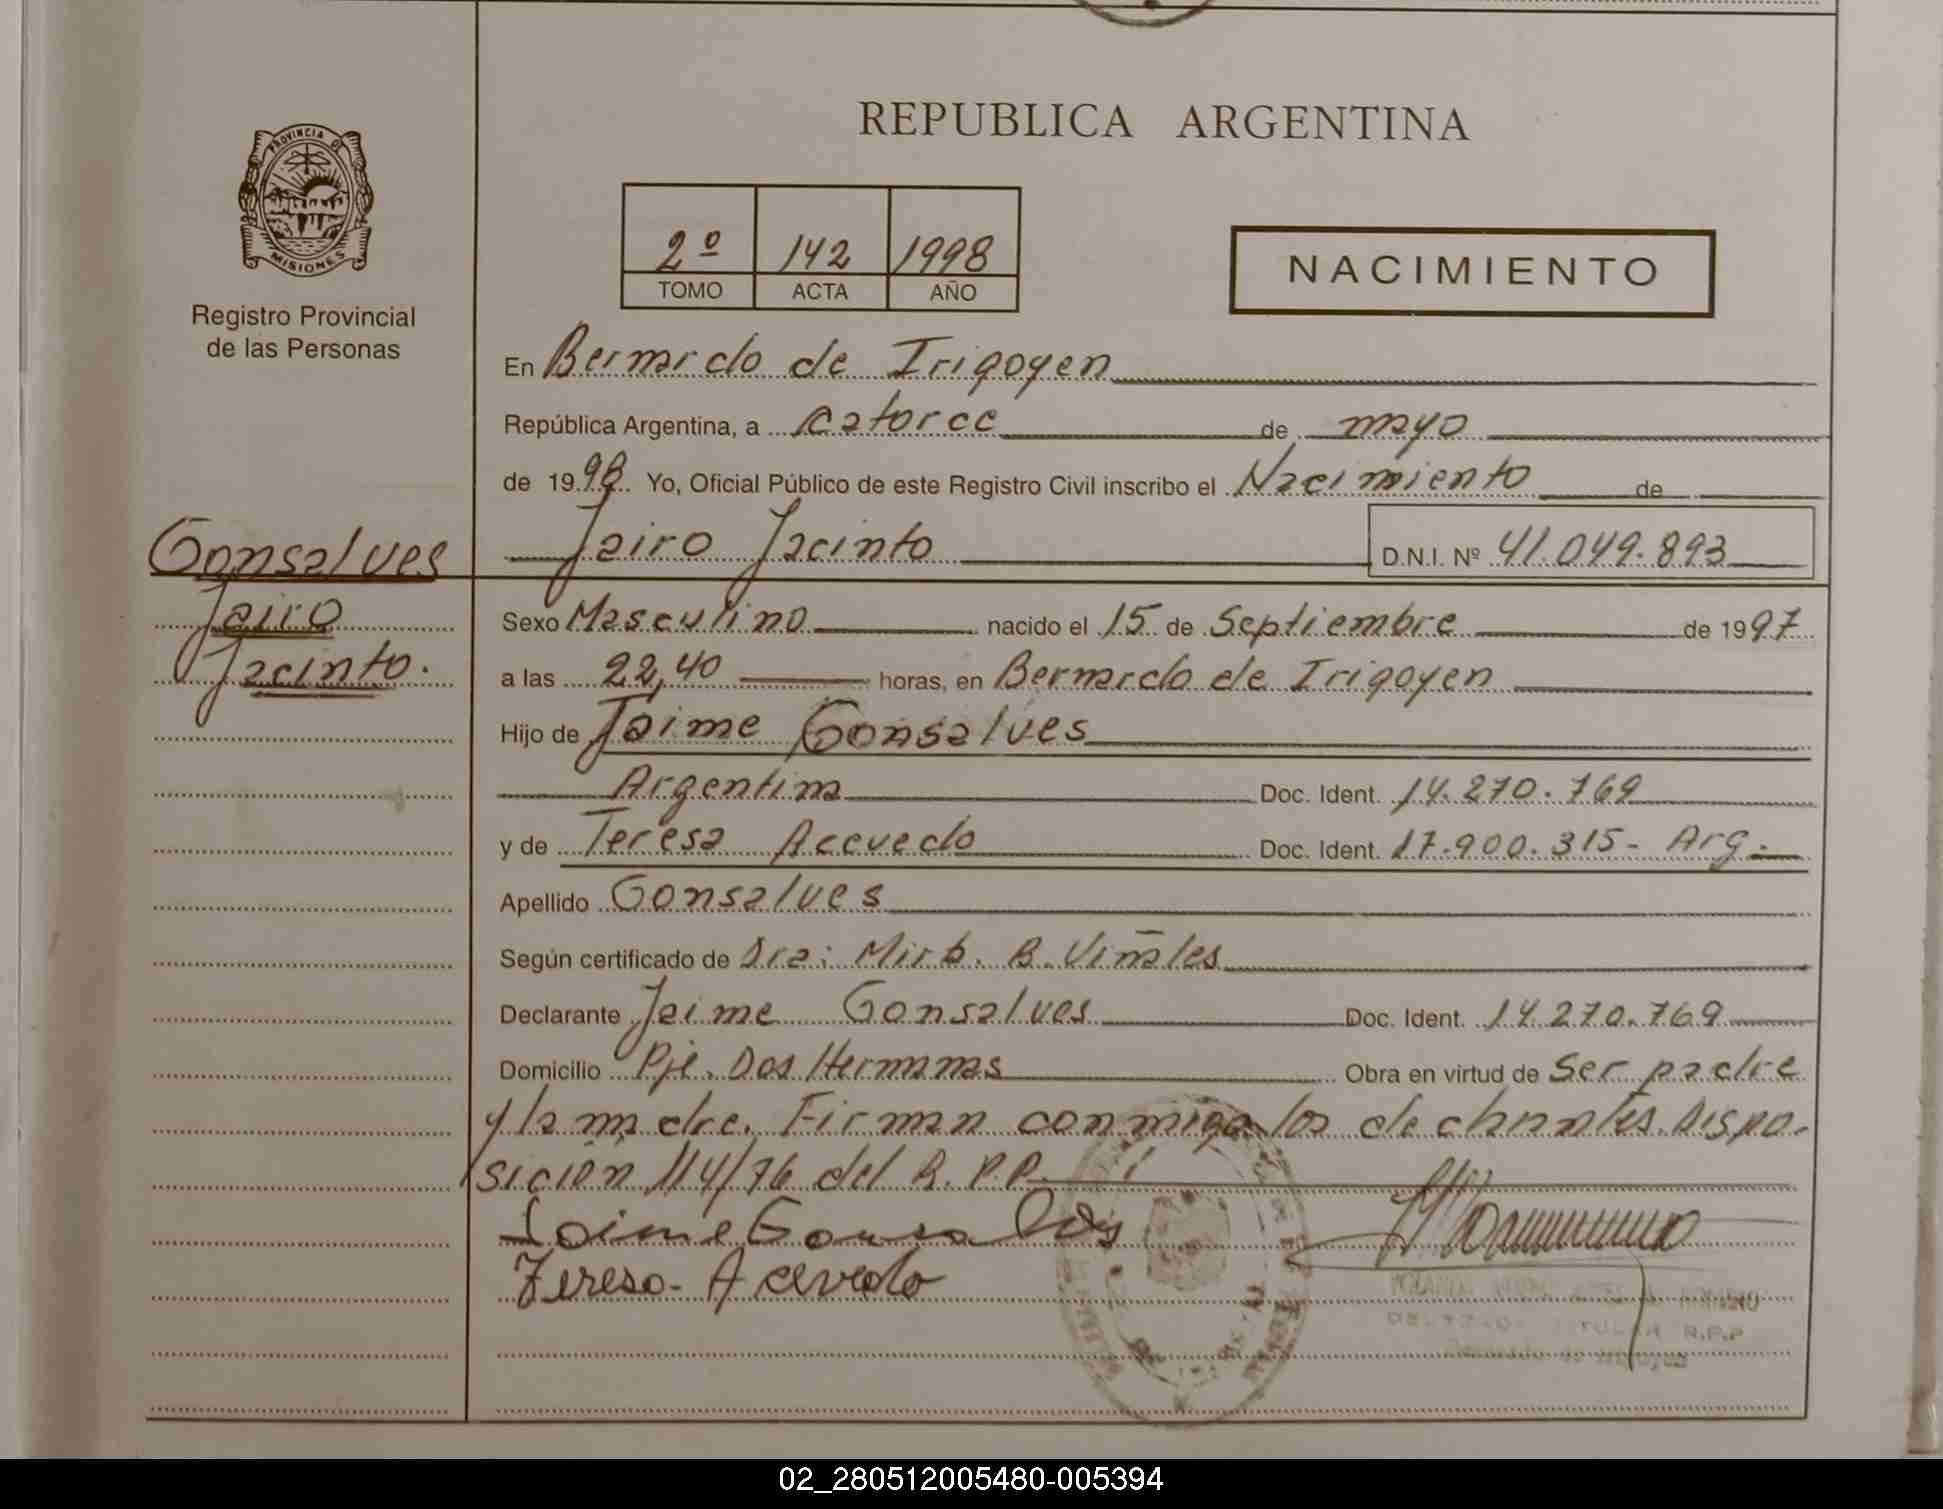 REPUBLICA ARGENTINA
PROVINCIA DE
MISIONES
Registro Provincial
de las Personas
2º 142 1998
TOMO ACTA AÑO
NACIMIENTO
En Bernardo de Irigoyen
República Argentina, a catorce de mayo
de 1998 Yo, Oficial Público de este Registro Civil inscribo el Nacimiento de
Jairo Jacinto D.N.I. Nº 41.049.893
Gonsalves
Jairo
Jacinto.
Sexo Masculino nacido el 15 de Septiembre de 1997
a las 22,40 horas, en Bernardo de Irigoyen
Hijo de Jaime Gonsalves
Argentina Doc. Ident. 14.270.769
y de Teresa Acevedo Doc. Ident. 17.900.315- Arg.
Apellido Gonsalves
Según certificado de Dra: Mirta. B. Viñales
Declarante Jaime Gonsalves Doc. Ident. 14.270.769
Domicilio Pje. Dos Hermanas Obra en virtud de Ser padre
y la madre. Firman conmigo los declarantes. Dispo-
sición 114/76 del R.P.P.
Jaime Gonsalves
Teresa- Acevedo
R.P.P
02_280512005480-005394